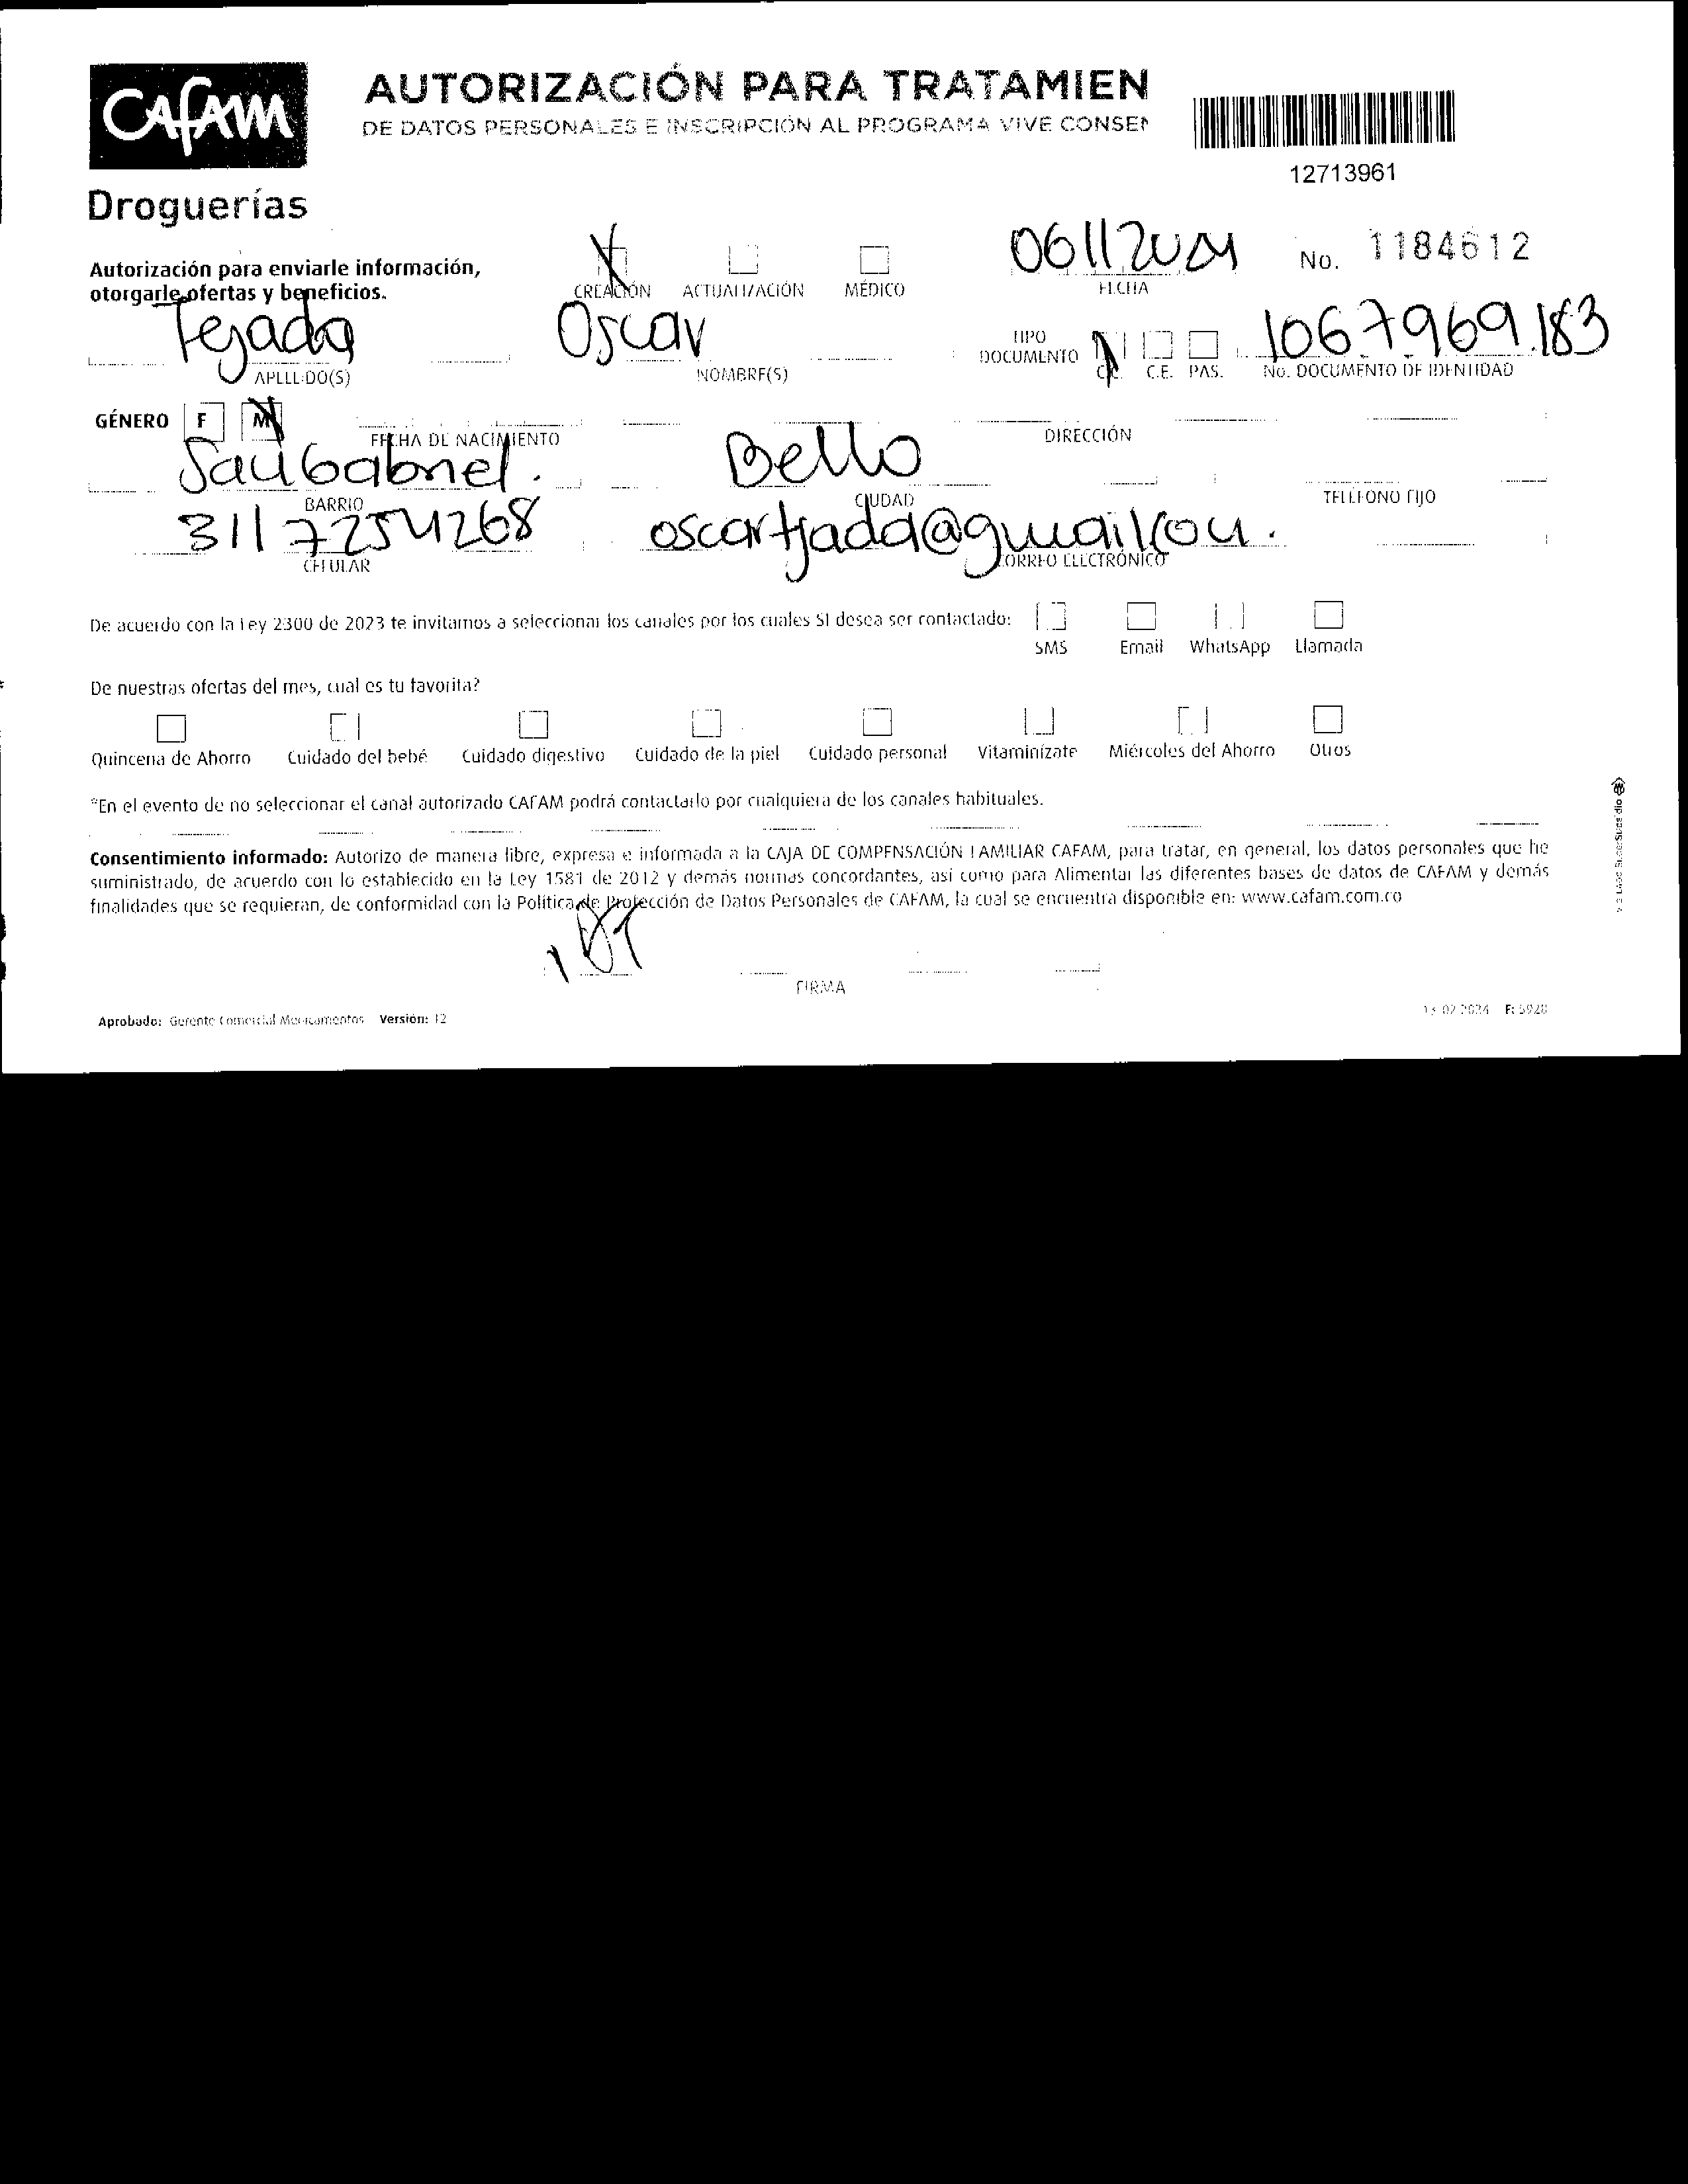 CAFAM
Droguerías
AUTORIZACIÓN PARA TRATAMIEN
DE DATOS PERSONALES E INSCRIPCIÓN AL PROGRAMA VIVE CONSEN
12713961
Autorización para enviarle información,
otorgarle ofertas y beneficios.
X
CREACIÓN ACTUALIZACIÓN MÉDICO
06112024
FECHA
No. 1184612
Tejada
APELLIDO(S)
Oscar
NOMBRE(S)
TIPO
DOCUMENTO
C.C. C.E. PAS.
1067969.183
No. DOCUMENTO DE IDENTIDAD
GÉNERO F M
FECHA DE NACIMIENTO
DIRECCIÓN
San Gabriel.
BARRIO
Bello
CIUDAD
TELÉFONO FIJO
3117254268
CELULAR
oscartjada@gmailcom.
CORREO ELECTRÓNICO
De acuerdo con la Ley 2300 de 2023 te invitamos a seleccionar los canales por los cuales SI desea ser contactado:
SMS Email WhatsApp Llamada
De nuestras ofertas del mes, cual es tu favorita?
Quincena de Ahorro Cuidado del bebé Cuidado digestivo Cuidado de la piel Cuidado personal Vitaminízate Miércoles del Ahorro Otros
*En el evento de no seleccionar el canal autorizado CAFAM podrá contactarlo por cualquiera de los canales habituales.
Consentimiento informado: Autorizo de manera libre, expresa e informada a la CAJA DE COMPENSACIÓN FAMILIAR CAFAM, para tratar, en general, los datos personales que he
suministrado, de acuerdo con lo establecido en la Ley 1581 de 2012 y demás normas concordantes, así como para Alimentar las diferentes bases de datos de CAFAM y demás
finalidades que se requieran, de conformidad con la Política de Protección de Datos Personales de CAFAM, la cual se encuentra disponible en: www.cafam.com.co
FIRMA
Aprobado: Gerente Comercial Medicamentos Versión: 12
02 2024 F: 5920